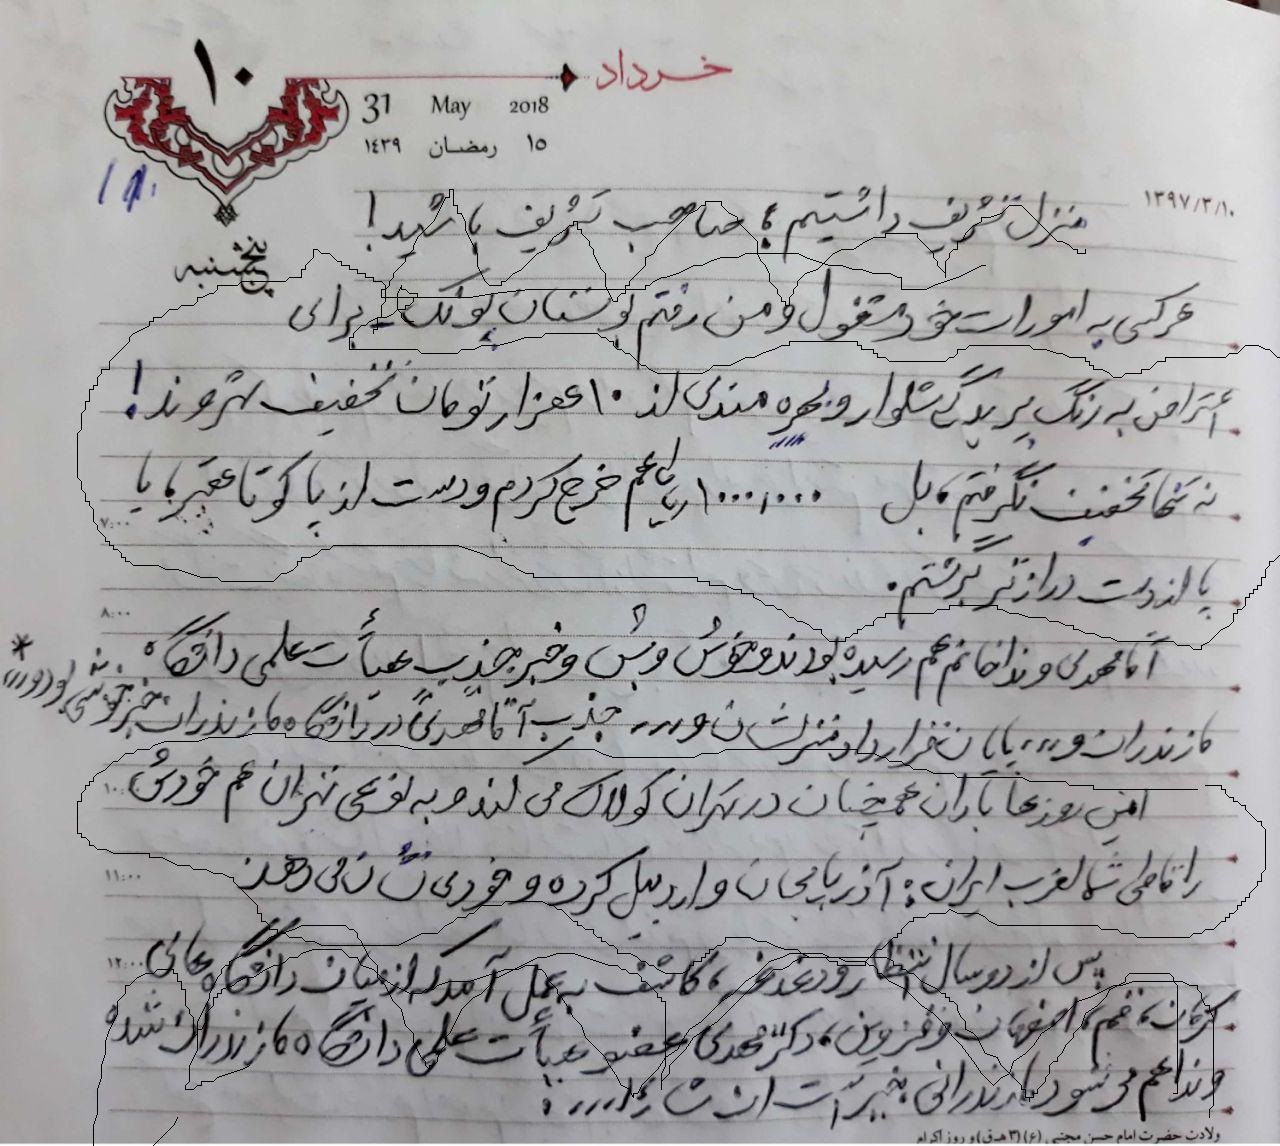 ۱۰
خرداد
31 May 2018
۱۵ رمضان ۱۴۳۹
پنجشنبه
۱۳۹۷/۳/۱۰
منزل تشریف داشتیم؛ صاحب تشریف باشید!
هرکسی به امورات خود مشغول و من رفتم بوستان پونک برای
اعتراض به رنگ پریدگی شلوار و بهره مندی از ۱۰ هزار تومان تخفیف شهروند!
نه تنها تخفیف نگرفتم، بل ۱۰۰۰،۰۰۰ ریال هم خرج کردم و دست از پا کوتاهتر، با
پا از دست درازتر برگشتم.
۷:۰۰
۸:۰۰
آقا مهدی و ندا خانم هم رسیده بودند و خوش وبش و خبر جذب هیأت علمی دانشگاه
مازندران و،،، پایان قرارداد منزلشان و،،،، جذب آقا مهدی در دانشگاه مازندران خبر خوشی بود و،،،
*
۱۰:۰۰
این روزها باران همچنان در تهران کولاک می کند و به نوعی تهران هم خودش
را قاطی شمالغرب ایران: آذربایجان و اردبیل کرده و خودی نشان می دهد
۱۱:۰۰
پس از دو سال انتظار و دغدغه، کاشف به عمل آمد که از میان دانشگاه هائی
۱۲:۰۰
کرمان، قم، اصفهان و قزوین، دکتر مهدی عضو هیأت علمی دانشگاه مازندران شده
و ندا هم می شود مازندرانی بخیر است ان شاءا،،،،
ولادت حضرت امام حسن مجتبی (ع) (۳ ه‍.ق) و روز اکرام